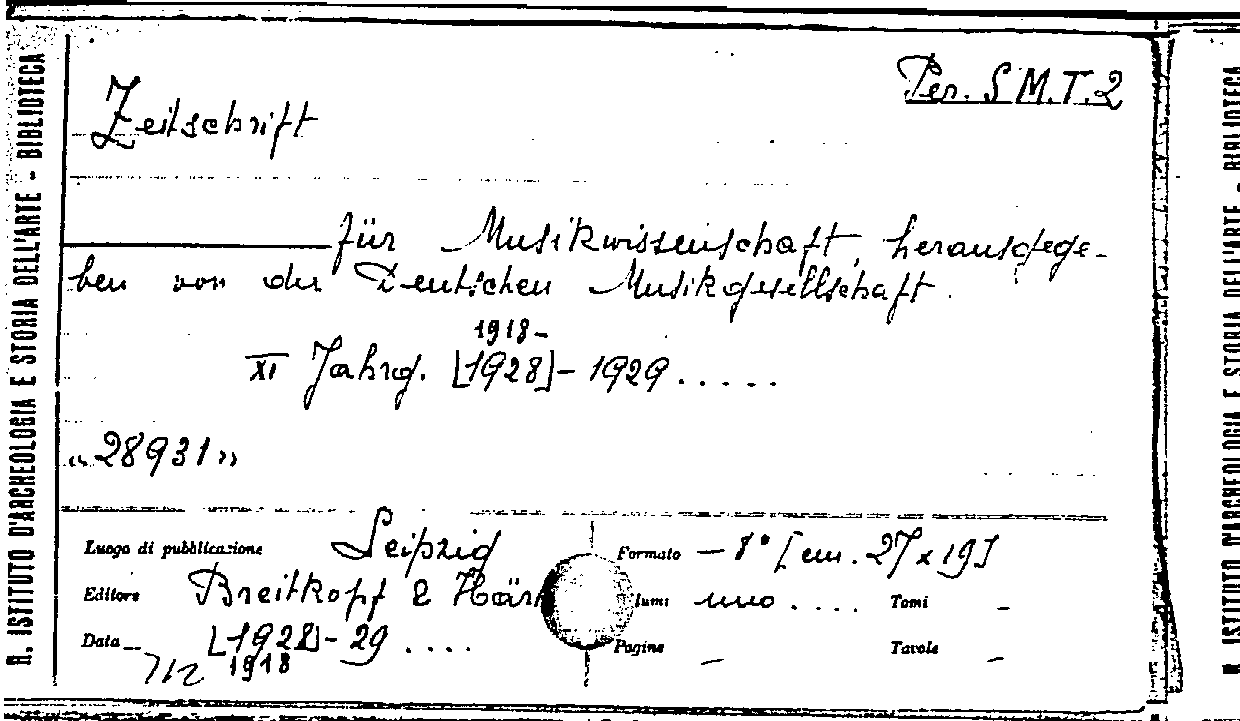 Per. S M.T.2
Zeitschrift
für Musikwissenschaft, herausgege-
ben von der Deutschen Musikgesellschaft.
1918-
XI Jahrg. [1928]-1929.....
«28931»
Luogo di pubblicazione Leipzig
Formato - 8° [cm. 27x19]
Editore Breitkopf & Härt
lumi uno.... Tomi -
Data [1928]-29....
1918
Pagine - Tavole -
R. ISTITUTO D'ARCHEOLOGIA E STORIA DELL'ARTE - BIBLIOTECA
ISTITUTO D'ARCHEOLOGIA E STORIA DELL'ARTE - BIBLIOTECA